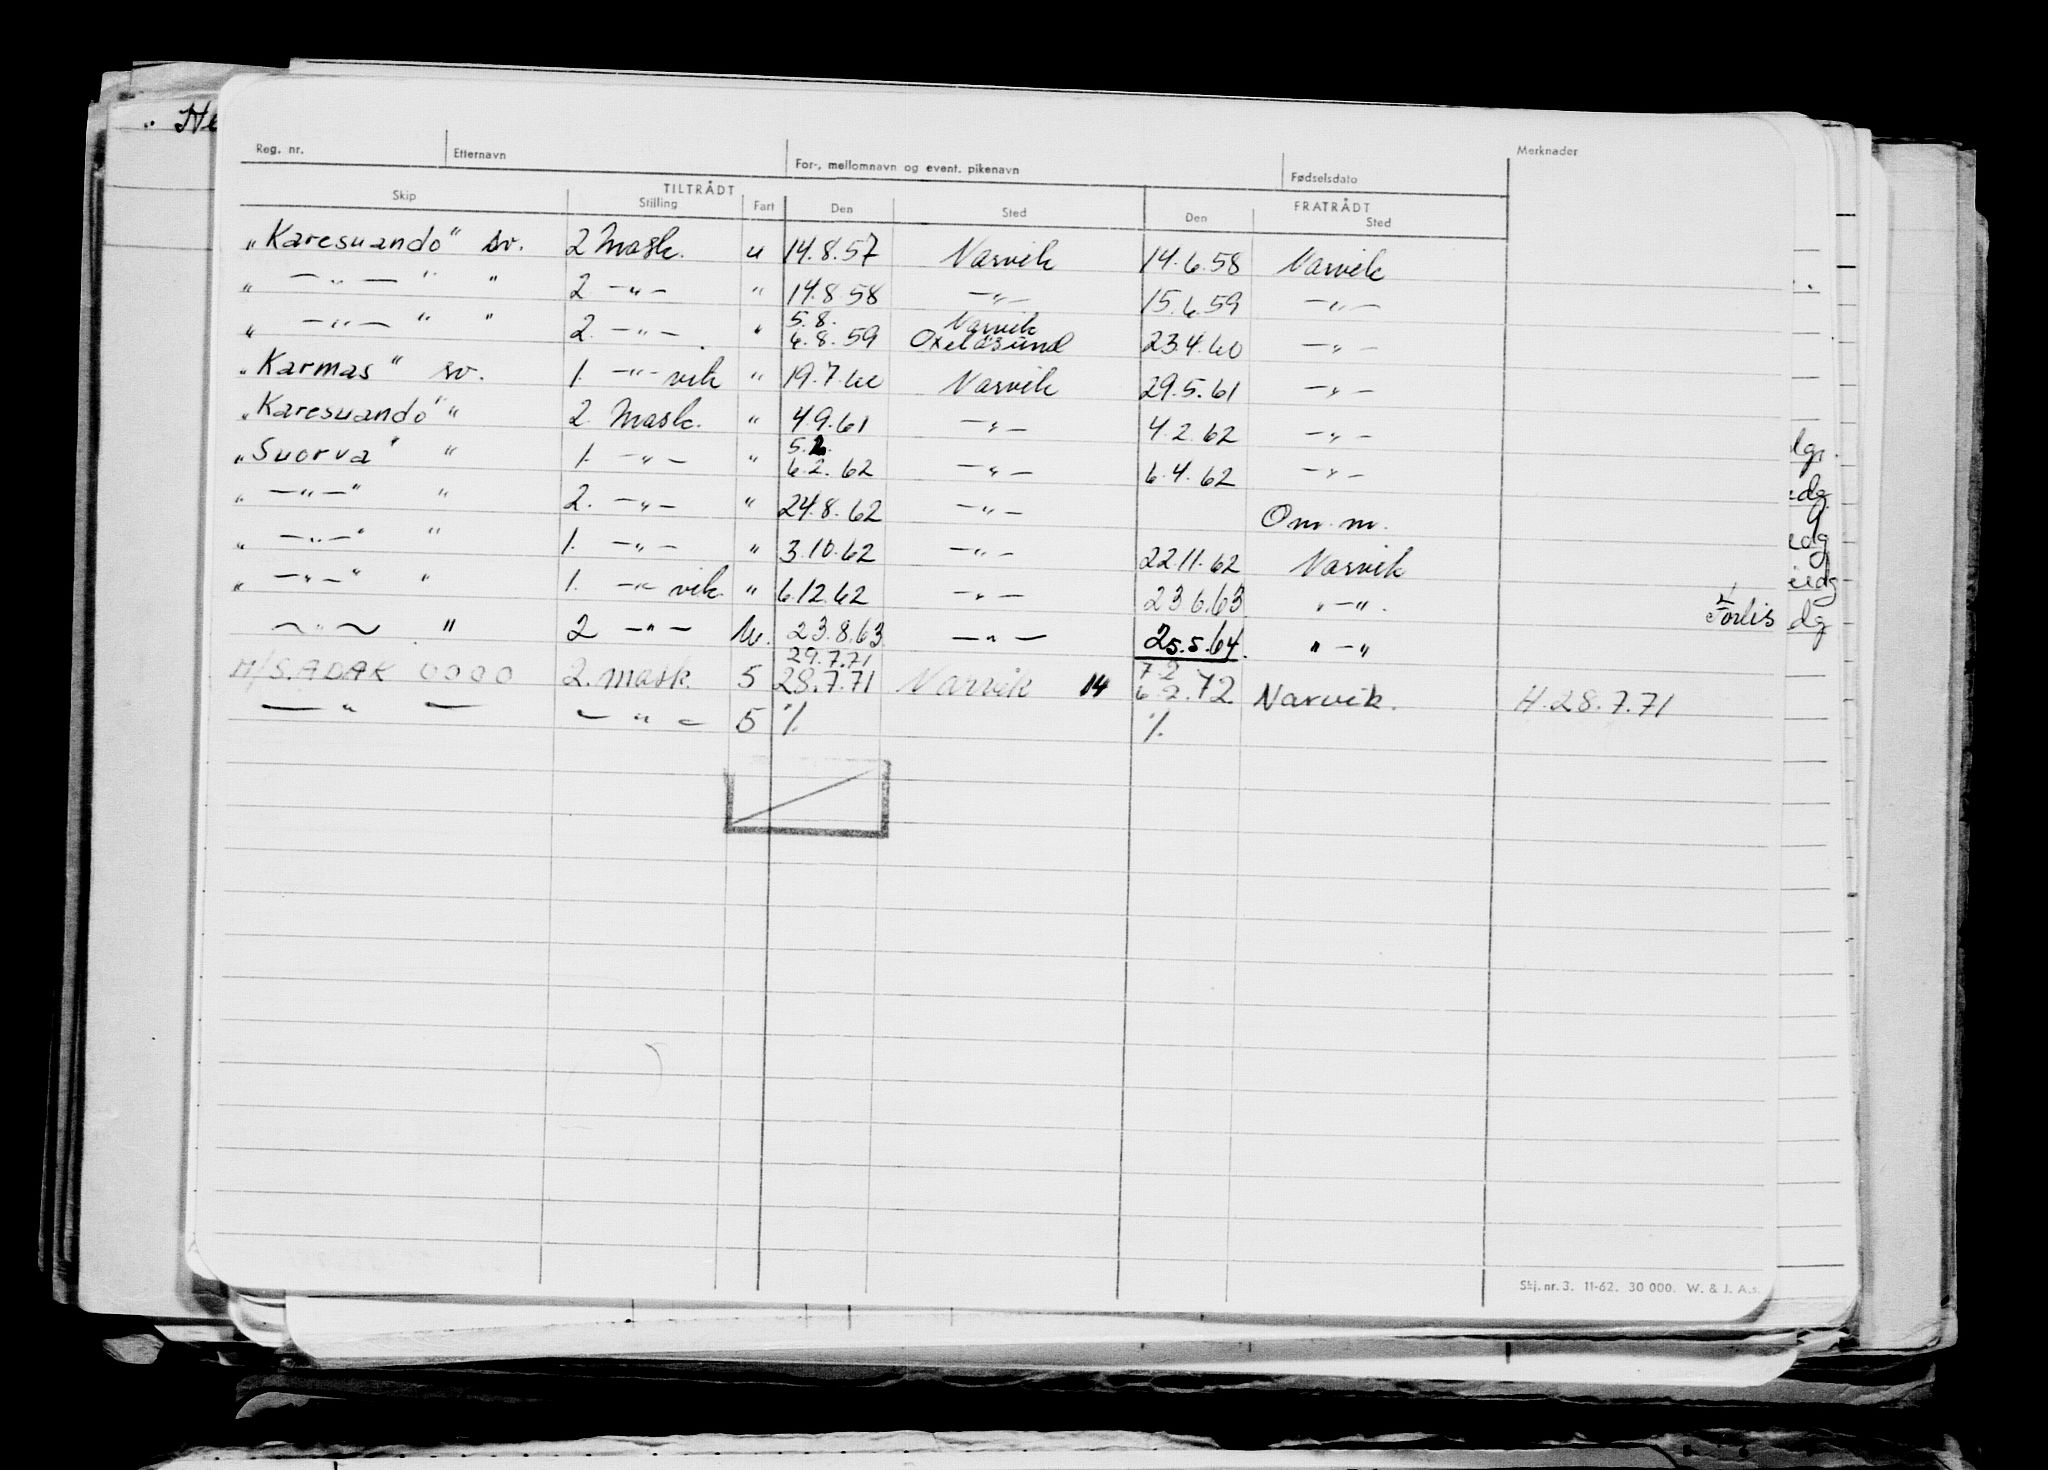 „ He
Reg. nr. Etternavn For-, mellomnavn og event. pikenavn Fødselsdato Merknader
TILTRÅDT FRATRÅDT
Skip Stilling Fart Den Sted Den Sted
„Karesuando“ sv. 2 Mask. u 14.8.57 Narvik 14.6.58 Narvik
„ —„— “ “ 2 —„— “ 14.8 58 —„— 15.6.59 —„—
5.8. Narvik
„ —„— “ “ 2. —„— “ 6.8.59 Oxelösund 23.4.60 —„—
„Karmas“ sv. 1. —„— vik “ 19.7.60 Narvik 29.5.61 —„—
„Karesuando“ “ 2. Mask. “ 4.9.61 —„— 4.2.62 —„—
5.2.
„Suorva“ “ 1. —„— “ 6.2.62 —„— 6.4.62 —„—
„ —„— “ “ 2. —„— “ 24.8.62 —„— Om. m.
„ —„— “ “ 1. —„— “ 3.10.62 —„— 22.11.62 Narvik
„ —„— “ “ 1. —„— vik. “ 6.12.62 —„— 23 6.63 „—„.
—„— “ 2 —„— u. 23.8.63 —„— 25.5.64. „—„
29.7.71 7.2
M/S ADAK OOOO 2. mask. 5 28.7.71 Narvik 14 6.2.72 Narvik. H.28.7.71
—„— —„— 5 ٪ ٪
Forlis
Skj. nr. 3. 11-62. 30 000. W. & J. A.s.